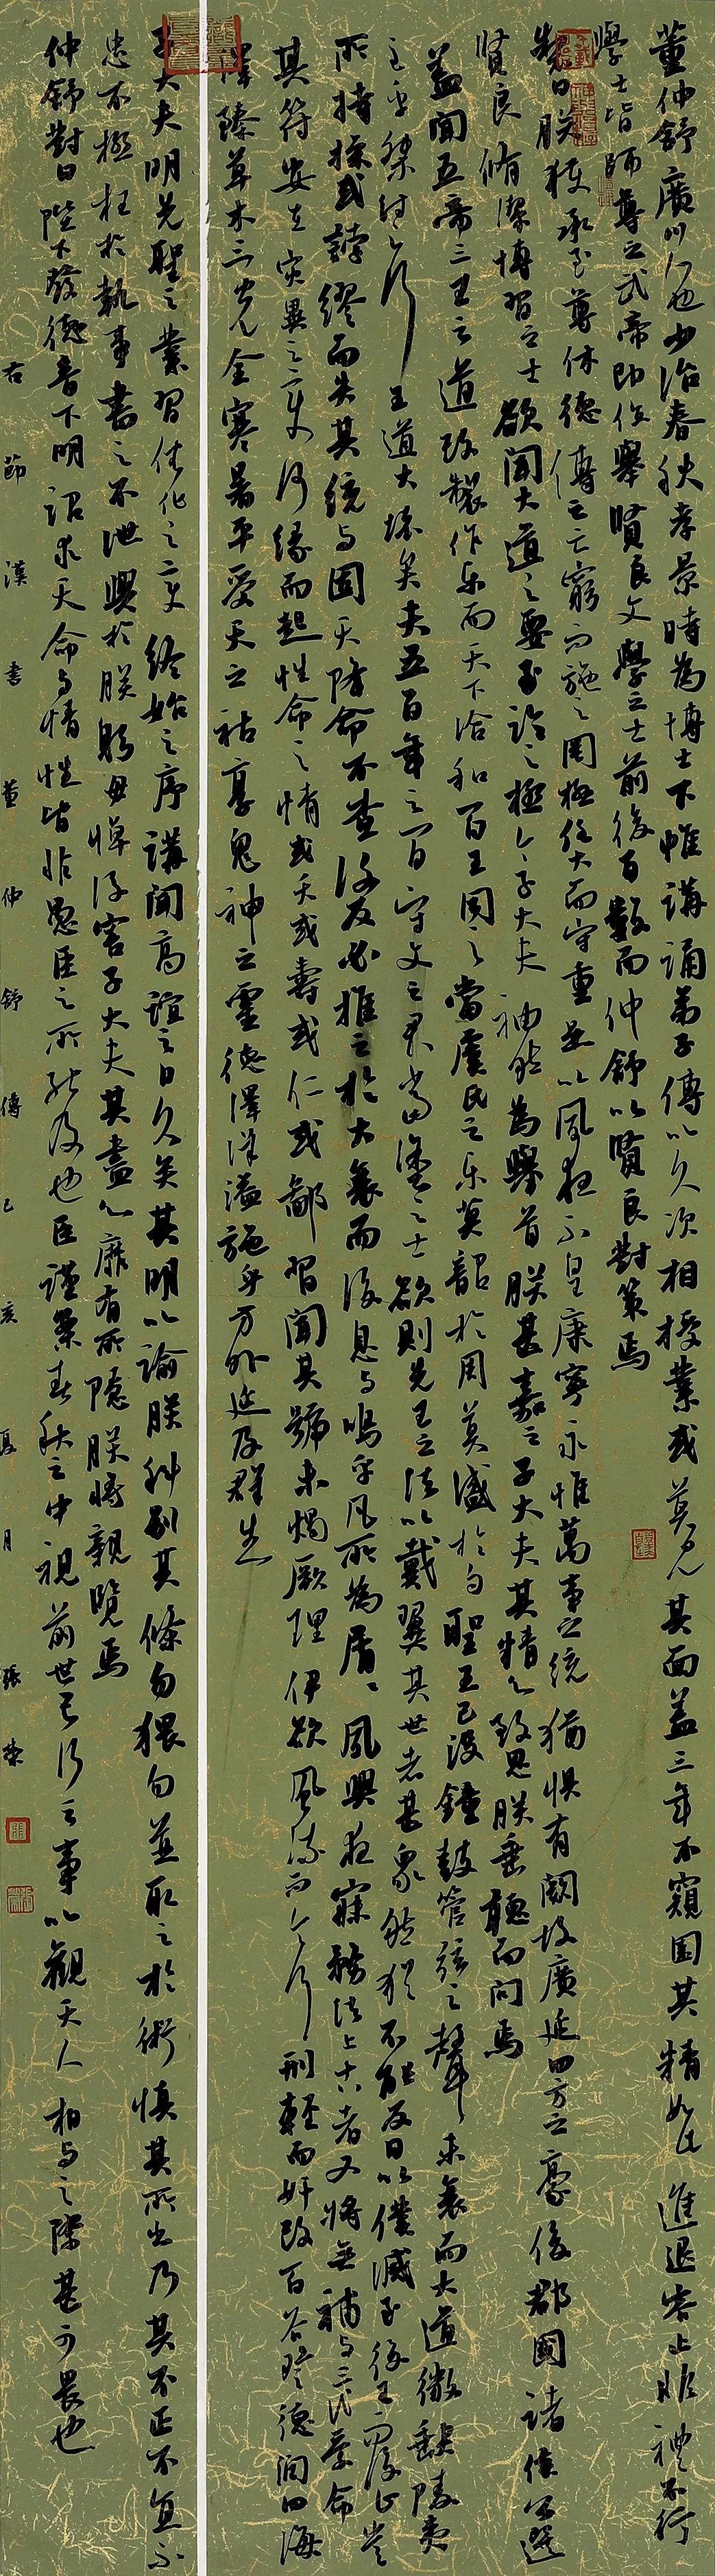 董仲舒廣川人也少治春秋孝景時為博士下帷講誦弟子傳以久次相授業或莫見其面蓋三年不窺園其精如此進退容止非禮不行
學士皆師尊之武帝即位舉賢良文學之士前後百數而仲舒以賢良對策焉
制曰朕獲承至尊休德傳之亡窮而施之罔極任大而守重是以夙夜不皇康寧永惟萬事之統猶懼有闕故廣延四方之豪俊郡國諸侯公選
賢良脩潔博習之士欲聞大道之要至論之極今子大夫褎然為舉首朕甚嘉之子大夫其精心致思朕垂聽而問焉
蓋聞五帝三王之道改製作樂而天下洽和百王同之當虞氏之樂莫韶於周莫盛於勺聖王已沒鐘鼓管弦之聲未衰而大道微缺陵夷
至乎桀紂之行王道大壞矣夫五百年之間守文之君當塗之士欲則先王之法以戴翼其世者甚眾然猶不能反日以僕滅至後王而後止豈
所持操或誖繆而失其統與固天降命不查復反必推之於大衰而後息與嗚乎凡所為屑屑夙興夜寐務法上古者又將無補與三代受命
其符安在災異之變何緣而起性命之情或夭或壽或仁或鄙習聞其號未燭厥理伊欲風流而令行刑輕而奸改百谷登德潤四海
澤臻草木三光全寒暑平受天之祜享鬼神之靈德澤洋溢施乎方外延及群生
子大夫明先聖之業習俗化之變終始之序講聞高誼之日久矣其明以諭朕科別其條勿猥勿並取之於術慎其所出乃其不正不直不
忠不極枉於執事書之不泄興於朕躬毋悼後害子大夫其盡心靡有所隱朕將親覽焉
仲舒對曰陛下發德音下明詔求天命與情性皆非愚臣之所能及也臣謹案春秋之中視前世已行之事以觀天人相與之際甚可畏也
右節漢書董仲舒傳己亥夏月張榮